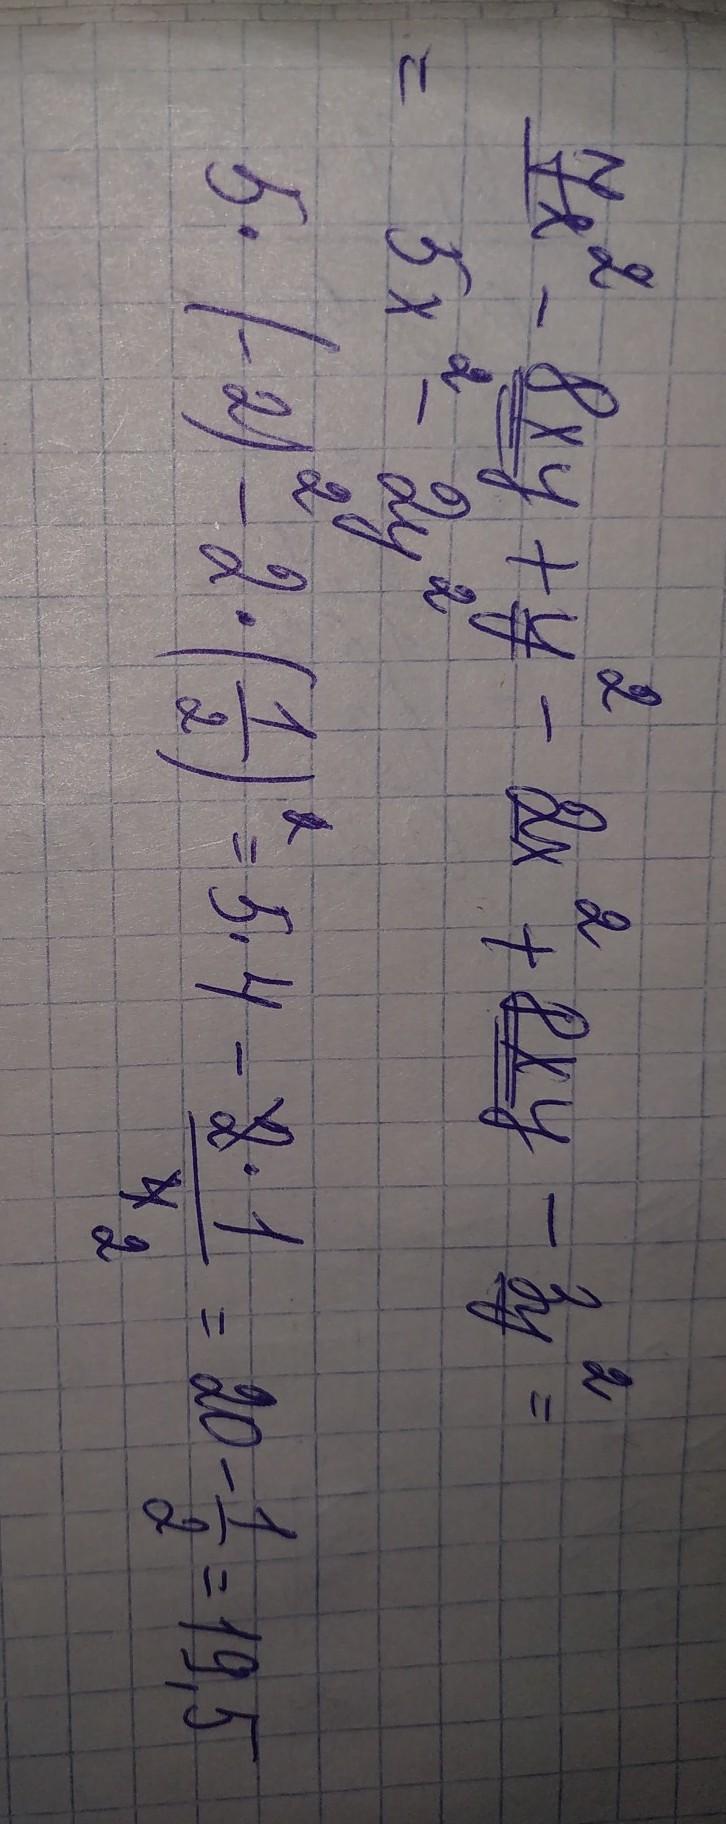 7x² - 8xy + y² - 2x² + 8xy - 3y² =
= 5x² - 2y²
5·(-2)² - 2·(1/2)² = 5·4 - (2·1)/(4 2) = 20 - 1/2 = 19,5